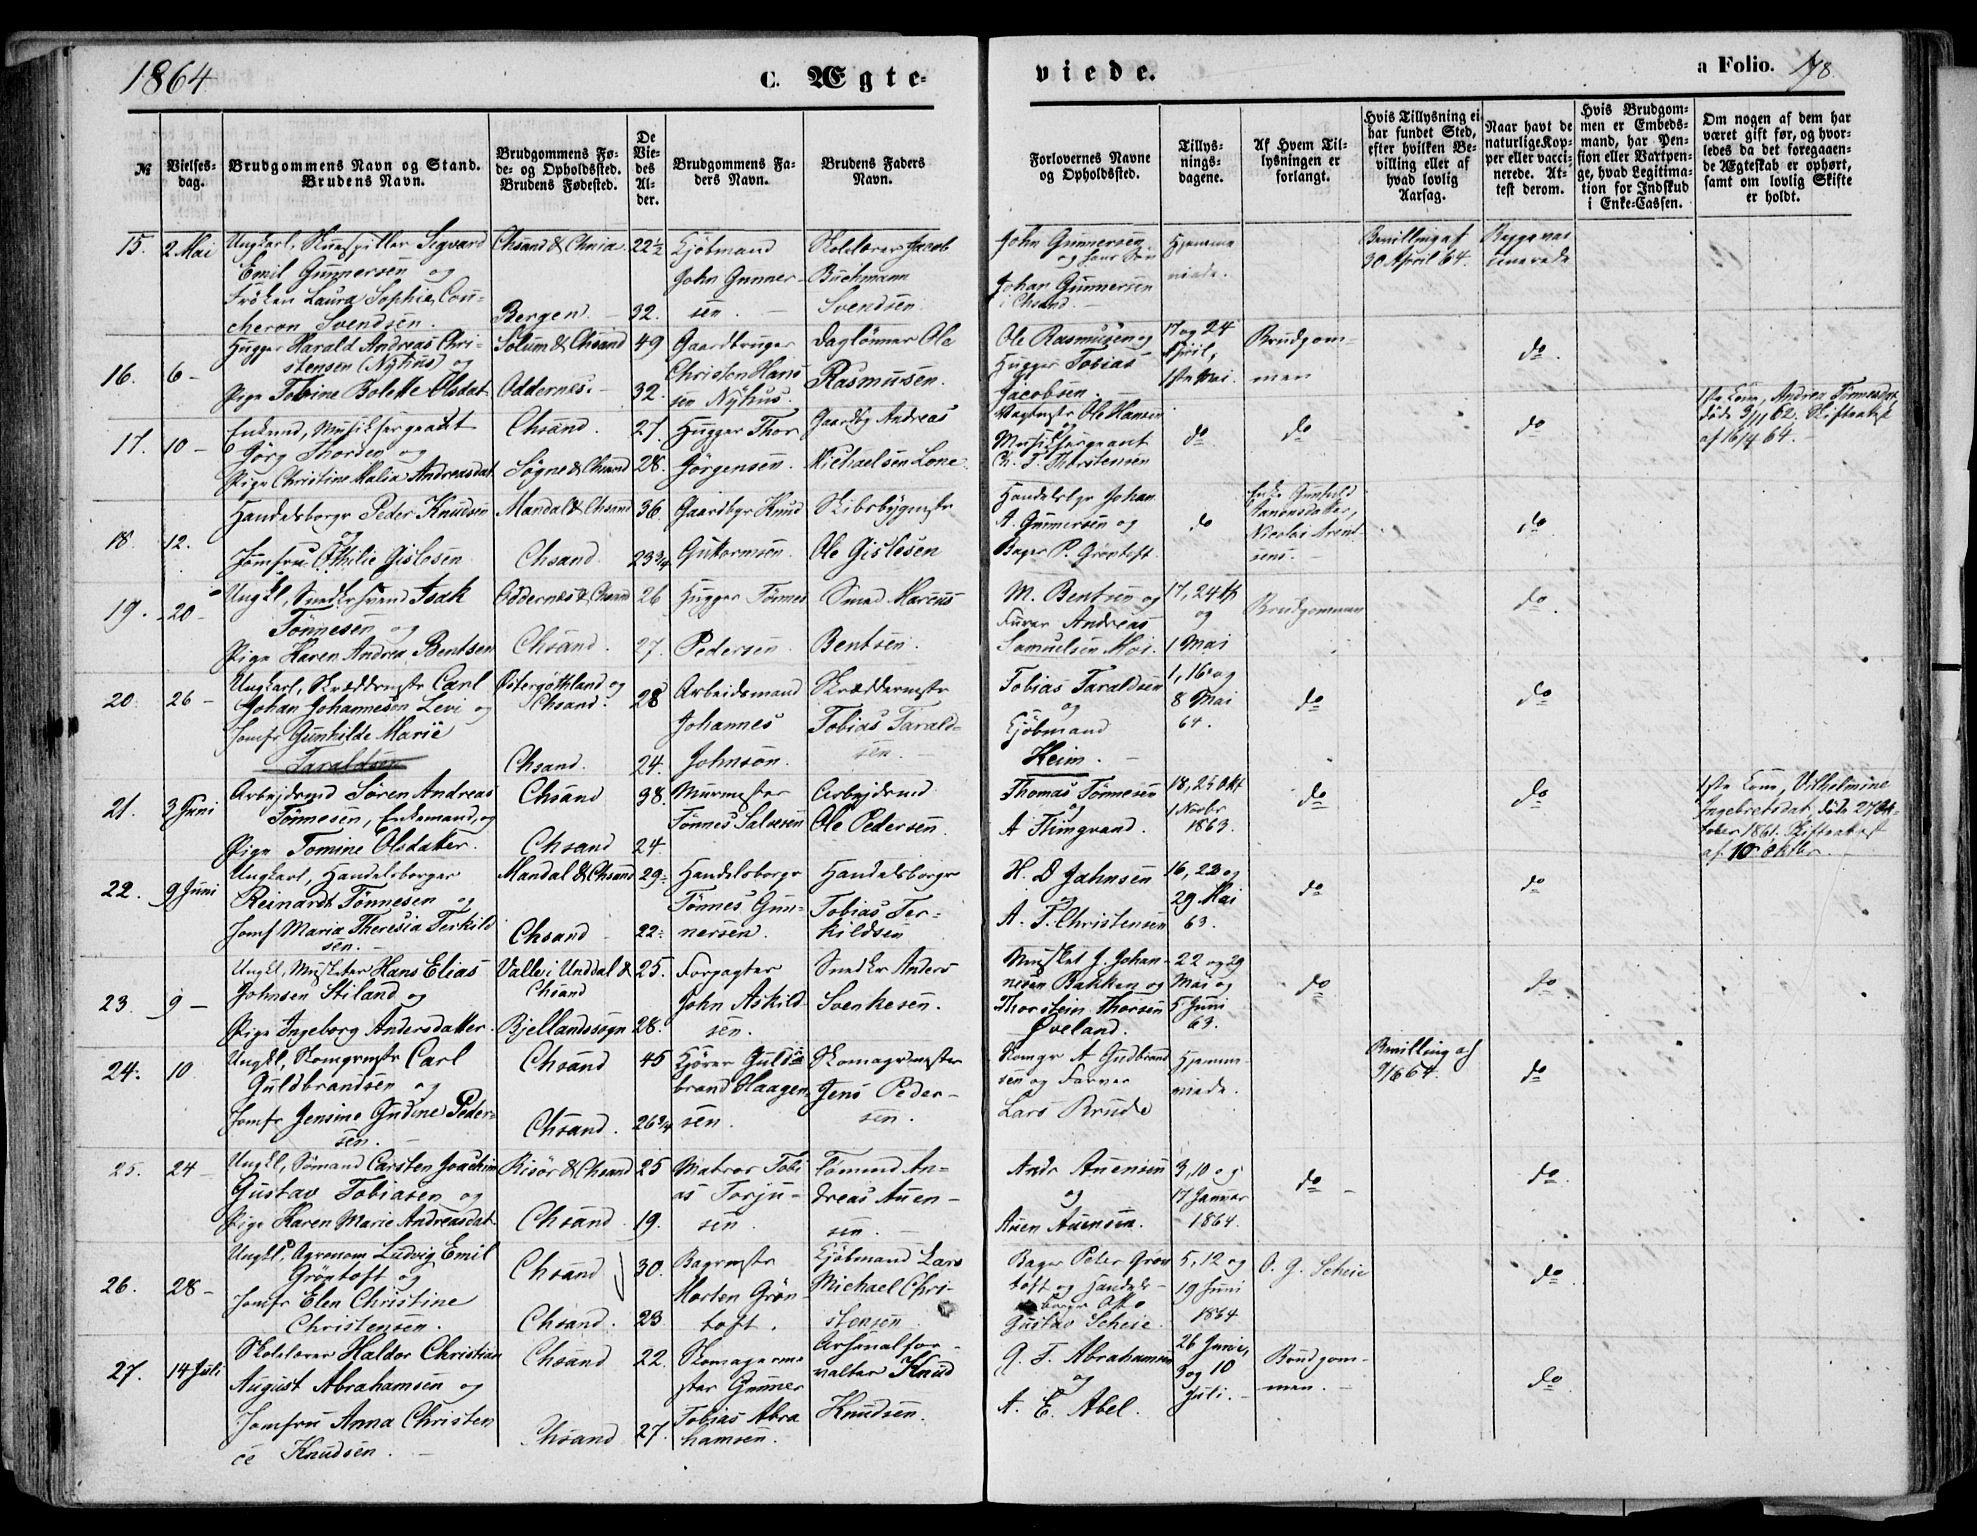 1864
C. Ægte-
viede.
a Folio. 178.
№
Vielses-
dag.
Brudgommens Navn og Stand.
Brudens Navn.
Brudgommens Fø-
de- og Opholdssted.
Brudens Fødested.
De
Vie-
des
Al-
der.
Brudgommens Fa-
ders Navn.
Brudens Faders
Navn.
Forlovernes Navne
og Opholdssted.
Tillys-
nings-
dagene.
Af Hvem Til-
lysningen er
forlangt.
Hvis Tillysning ei
har fundet Sted,
efter hvilken Be-
villing eller af
hvad lovlig
Aarsag.
Naar havt de
naturlige Kop-
per eller vacci-
nerede. At-
test derom.
Hvis Brudgom-
men er Embeds-
mand, har Pen-
sion eller Vartpen-
ge, hvad Legitima-
tion for Indskud
i Enke-Cassen.
Om nogen af dem har
været gift før, og hvor-
ledes da det foregaaen-
de Ægteskab er ophørt,
samt om lovlig Skifte
er holdt.
15. 2 Mai
Ungkarl, Skuespiller Sigvard
Emil Gunnersen og
Frøken Laura Sophie Cou-
cheron Svendsen.
Chsand & Chnia
Bergen.
22½
32.
Kjøbmand
John Gunner-
sen.
Skolelærer Jacob
Buchmann
Svendsen
John Gunnersen
og hans Søn
Johan Gunnersen
i Chsand.
Hjemme
viede.
Bevilling af
30 April 64.
Begge vac
cinerede
16. 6 -
Hugger Harald Andreas Chri-
stensen (Nyhus) og
Pige Tobine Bolette Olsdat.
Solum & Chsand
Oddernes.
49
32.
Gaardbruger
Christen Hans
sen Nyhus.
Daglønner Ole
Rasmusen.
Ole Rasmusen og
Hugger Tobias
Jacobsen.
17 og 24
April,
1ste Mai.
Brudgom-
men
do
17. 10 -
Enkemd, Musiksergeant
Jörg Thorsen og
Pige Christine Malia Andreasdat
Chsand.
Søgne & Chsand
27
28.
Hugger Thor
Jörgensen.
Gaardbg Andreas
Michaelsen Lone.
Vagtmstr Ole Hansen
og
Musiksergeant
Ch. F. Thorstensen
do
do
do
1ste Kone, Andrea Tønnesdat
døde 3/11 62. Skifteattest
af 16/4 64.
18. 12.
Handelsborgr Peder Knudsen
og
Jomfru Othilie Gislesen
Mandal & Chsand
Chsand.
36.
23¾
Gaardbgr Knud
Guttormsen.
Skibsbygmstr
Ole Gislesen
Handelsbgr Johan
A. Gunnersen og
Bager P. Grøntoft.
do
Enke Gunhild
Aanensdatter,
Nicolai Arent-
sens.
do
19. 20 -
Ungkl, Snedkersvend Isak
Tönnesen og
Pige Karen Andrea Bentsen
Oddernes & Chsand
Chsand.
26
27.
Hugger Tønnes
Pedersen.
Smed Marcus
Bentsen.
M. Bentsen og
Furer Andreas
Samuelsen Moi.
17, 24 Ap
og
1 Mai
Brudgommen
do
20. 26 -
Ungkarl, Skræddermstr Carl
Johan Johannesen Levi og
Jomfr Gunhilde Marie
Taraldsen
Østergøthland og
Chsand.
Chsand.
28
24.
Arbeidsmand
Johannes
Johnson.
Skræddermstr
Tobias Tarald-
sen.
Tobias Taraldsen
og
Kjøbmand
Heim.
1, 16 og
8 Mai
64.
do
do
21. 3 Juni
Arbejdsmd Søren Andreas
Tönnesen, Enkemand, og
Pige Tomine Olsdatter.
Chsand
Chsand
38.
24.
Murmester
Tönnes Salvesen
Arbejdsmd
Ole Pedersen.
Thomas Tønnesen
og
A Flimgvand.
18, 25 Okt
1 Novbr
1863.
do
do
1ste Kone, Vilhelmine
Ingebretsdat, døde 27 Ok-
tober 1861. Skifteattest
af 10 Oktbr.
22. 9 Juni
Ungkarl, Handelsborger
Reinardt Tønnesen og
Jomf Maria Theresia Terkild
sen.
Mandal & Chsand
Chsand
29.
22.
Handelsborgr
Tönnes Gun-
nersen.
Handelsborgr
Tobias Ter-
kildsen
H. D Jahnsen
og
A. F. Christensen
16, 22 og
29 Mai
63.
do
do
23. 9 -
Ungkl, Musketer Hans Elias
Johnsen Stiland og
Pige Ingeborg Andersdatter.
Valle i Unddal &
Chsand
Bjellandssogn
25.
28.
Forpagter
John Askild-
sen.
Snedkr Anders
Svenkesen.
Musket J. Johan-
nesen Bakken og
Thorstein Thorsen
Øveland.
22 og 29
Mai og
5 Juni
63.
do
do
24. 10
Ungkl, Skomgrmstr Carl
Guldbrandsen og
Jomfr Jensine Gudine Peder-
sen.
Chsand
Chsand.
45
26¾
Kjører Guld-
brand Haagen
sen.
Skomagermester
Jens Peder-
sen.
Skomgr A Gudbrand
sen og Farver
Lars Brude
Hjemme-
viede.
Bevilling af
9/6 64.
do
25. 24 -
Ungkl, Sømand Carsten Joachim
Gustav Tobiasen og
Pige Karen Marie Andreasdat.
Risör & Chsand
Chsand.
25
19.
Matros Tobi
as Torju-
sen.
Tømmd An-
dreas Auen-
sen.
Andr Auensen
og
Auen Auensen.
3, 10 og
17 Januar
1864.
do
do
26. 28 -
Ungkl, Agronom Ludvig Emil
Gröntoft og
Jomfr Elen Christine
Christensen.
Chsand
Chsand.
30.
23
Bagermstr
Morten Grön-
toft.
Kjøbmand Lars
Michael Chri-
stensen
Bager Peter Grøn
toft og Handels-
borger Otto
Gustav Scheie.
5, 12 og
19 Juni
1864
O. G. Scheie
do
27. 14 Juli
Skolelærer Haldor Christian
August Abrahamsen og
Jomfru Anna Christen
ce Knudsen.
Chsand
Chsand
22.
27.
Skomagerme
ster Gunner
Tobias Abra
hamsen.
Arsenalfor-
valter Knud
Knudsen.
G. T. Abrahamsen
og
A. E. Abel.
26 Juni,
3 og 10
Juli.
Brudgom-
men.
do